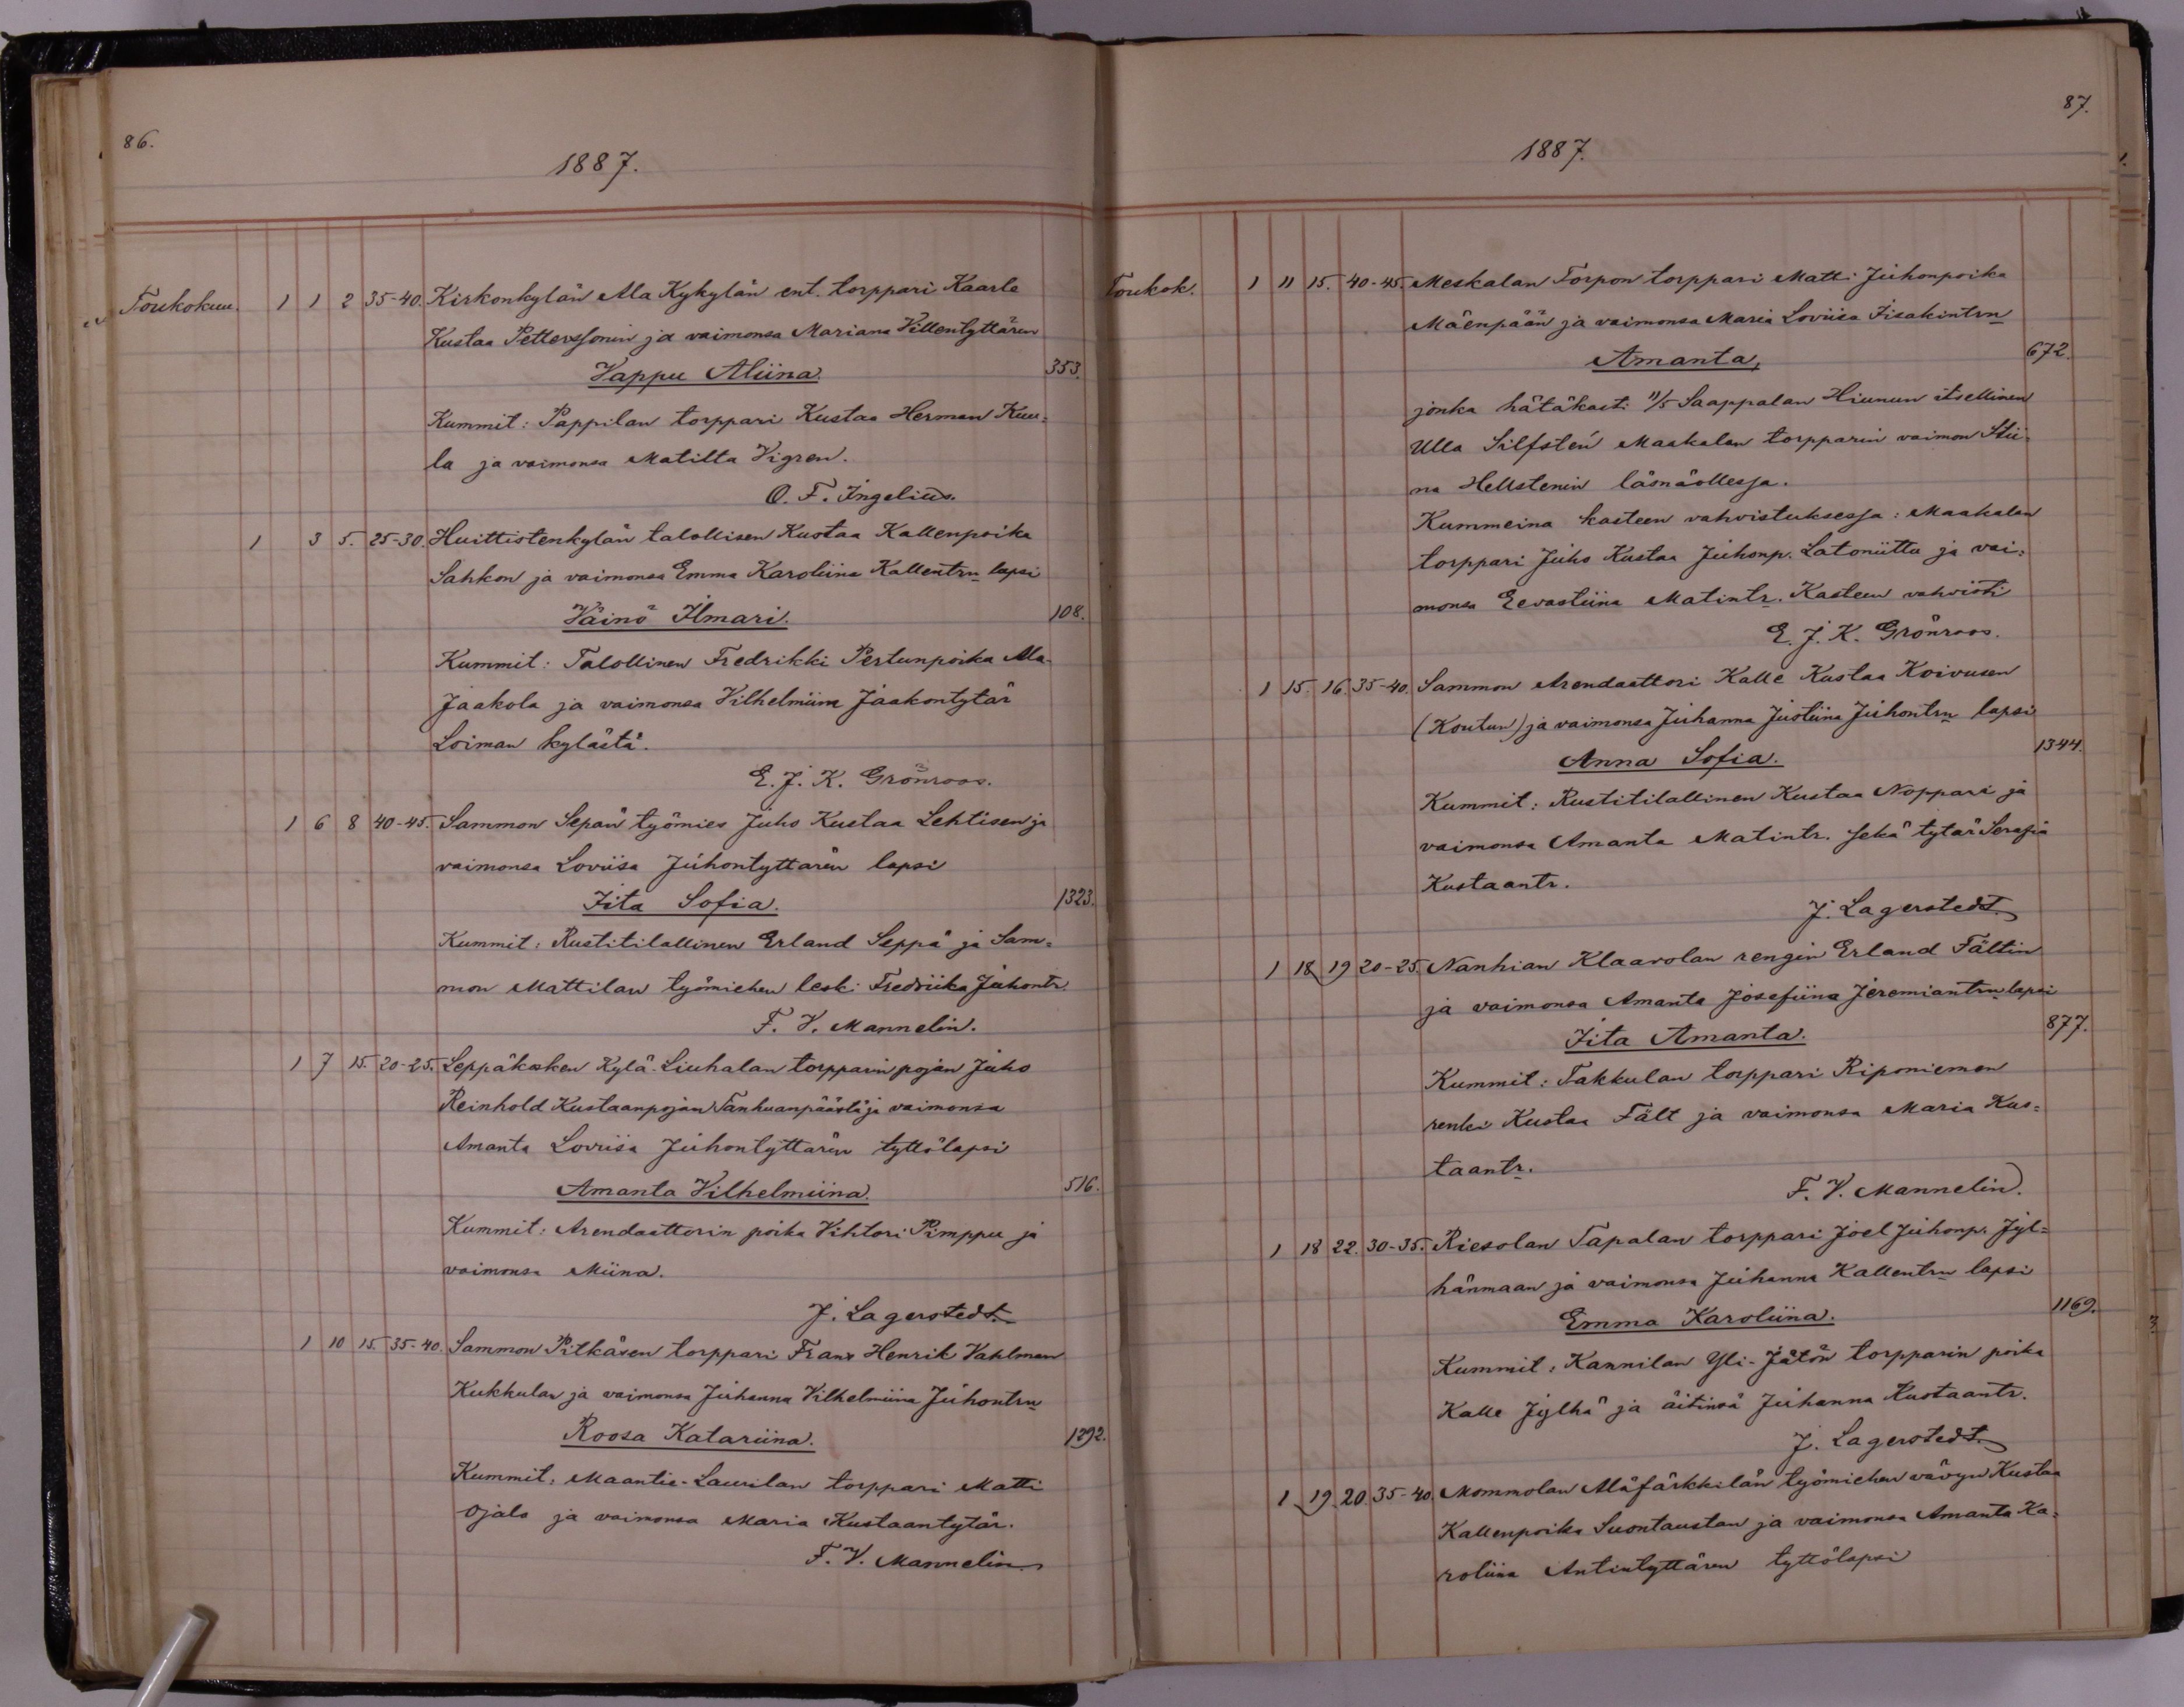 86.
1887.
Toukokuu. 1 1 2 35-40. Kirkonkylän Ala Kykylän ent. torppari Kaarle
Kustaa Petterssonin ja vaimonsa Mariana Villentyttären
Vappu Aliina. 353.
Kummit: Pappilan torppari Kustaa Herman Kuu=
la ja vaimonsa Matilta Vigren.
O. F. Ingelius.
1 3 5. 25-30. Huittistenkylän talollisen Kustaa Kallenpoika
Sahkon ja vaimonsa Emma Karoliina Kallentrn lapsi
Väinö Ilmari. 108.
Kummit: Talollinen Fredrikki Pertunpoika Ala-
Jaakola ja vaimonsa Vilhelmiina Jaakontytär
Loiman kylästä.
E. J. K. Grönroos.
1 6 8 40-45. Sammon Sepän työmies Juho Kustaa Lehtisen ja
vaimonsa Loviisa Juhontyttären lapsi
Iita Sofia. 1323.
Kummit: Rustitilallinen Erland Seppä ja Sam=
mon Mattilan työmiehen leski Fredriika Juhontr.
F. V. Mannelin.
1 7 15. 20-25. Leppäkosken Kylä-Liuhalan torpparin pojan Juho
Reinhold Kustaanpojan Tanhuanpäästä ja vaimonsa
Amanta Loviisa Juhontyttären tyttölapsi
Amanta Vilhelmiina. 516.
Kummit: Arendaattorin poika Vihtori Pimppu ja
vaimonsa Miina.
J. Lagerstedt.
1 10 15. 35-40. Sammon Pitkäsen torppari Frans Henrik Vahlman
Kukkulan ja vaimonsa Juhanna Vilhelmiina Juhontrn
Roosa Katariina. 1292.
Kummit: Maantie-Laurilan torppari Matti
Ojala ja vaimonsa Maria Kustaantytär.
F. V. Mannelin.
87.
1887.
Toukok. 1 11 15. 40-45. Meskalan Torpon torppari Matti Juhonpoika
Mäenpään ja vaimonsa Maria Loviisa Iisakintrn
Amanta, 672.
jonka hätäkasti 11/5 Saappalan Hiunun itsellinen
Ulla Silfstén Maakalan torpparin vaimon Stii=
na Hellstenin läsnäollessa.
Kummeina kasteen vahvistuksessa: Maakalan
torppari Juho Kustaa Juhonp. Latoniittu ja vai=
monsa Eevastiina Matintr. Kasteen vahvisti
E. J. K. Grönroos.
1 15. 16. 35-40. Sammon Arendaattori Kalle Kustaa Koivusen
(Koutun) ja vaimonsa Juhanna Justiina Juhontrn lapsi
Anna Sofia. 1344.
Kummit: Rustitilallinen Kustaa Noppari ja
vaimonsa Amanta Matintr. sekä tytär Serafia
Kustaantr.
J. Lagerstedt.
1 18 19 20-25. Nanhian Klaavolan rengin Erland Fältin
ja vaimonsa Amanta Josefiina Jeremiantrn lapsi
Iita Amanta. 877.
Kummit: Takkulan torppari Riponiemen
renki Kustaa Fält ja vaimonsa Maria Kus=
taantr.
F. V. Mannelin.
1 18 22. 30-35. Riesolan Tapalan torppari Joel Juhonp. Jyl=
hänmaan ja vaimonsa Juhanna Kallentrn lapsi
Emma Karoliina. 1169.
Kummit: Kannilan Yli-Jätön torpparin poika
Kalle Jylhä ja äitinsä Juhanna Kustaantr.
J. Lagerstedt.
1 19 20 35-40. Mommolan työmiehen vävyn Kustaa
Kallenpoika Suontaustan ja vaimonsa Amanta Ka=
roliina Antintyttären tyttölapsi